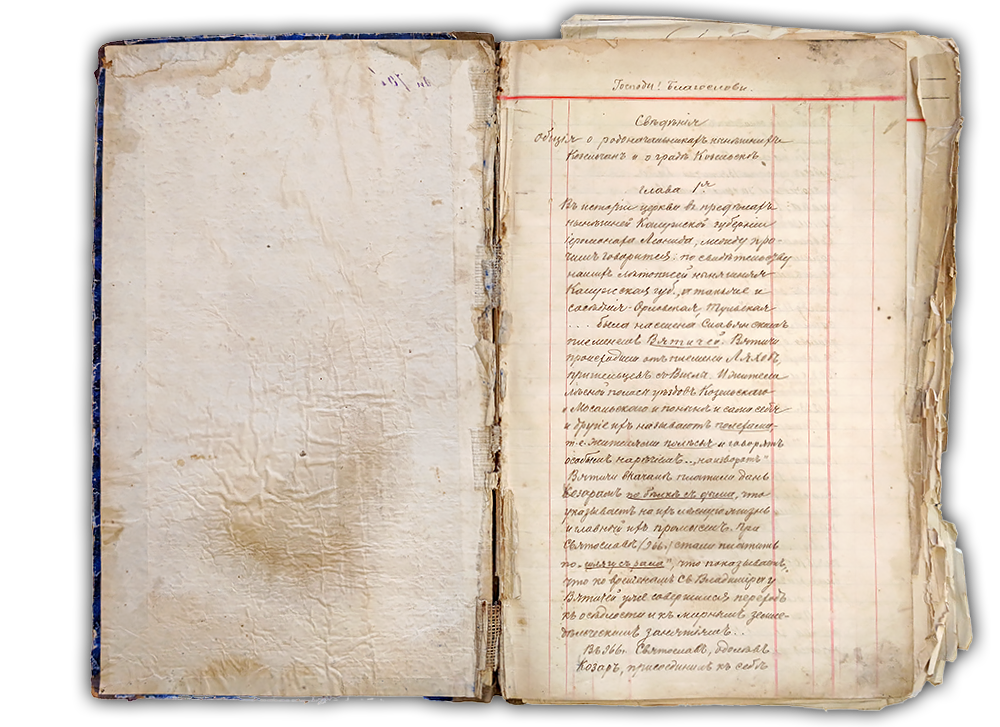 Господи! Благослови.
Свѣдѣнія
общія о родоначальникахъ нынѣшнихъ
Козличанъ и о градѣ Козельскѣ
глава 1я
Въ исторіи церкви въ предѣлахъ
нынѣшней Калужской губерніи
Іеромонаха Леонида, между про-
чимъ говорится: по свидѣтельству
нашихъ лѣтописей нынѣшняя
Калужская губ., а также и
сосѣднія Орловская Тульская
.... была населена Славянскимъ
племенемъ Вятичей. Вятичи
происходили отъ племени Ляховъ,
пришельцевъ съ Вислы. И жители
лѣсной полосы уѣздовъ Козельскаго
и Мосальскаго и понынѣ и сами себя
и другіе ихъ называютъ полехами,
т.е. жителями полѣсья и говорятъ
особымъ нарѣчіемъ..,
Вятичи вначалѣ платили дань
Козарамъ по бѣлкѣ съ дыма, что
указываетъ на ихъ лѣсную жизнь
и главный ихъ промыселъ. При
Святославѣ (966.) стали платить
по „шлягу съ рала", что показываетъ,
что ко временамъ Св Владиміра у
Вятичей уже совершился переходъ
къ осѣдлости и къ мирнымъ земле-
дѣльческимъ занятіямъ..
Въ 966г. Святославъ, одолѣвъ
Козаръ, присоединилъ къ себѣ